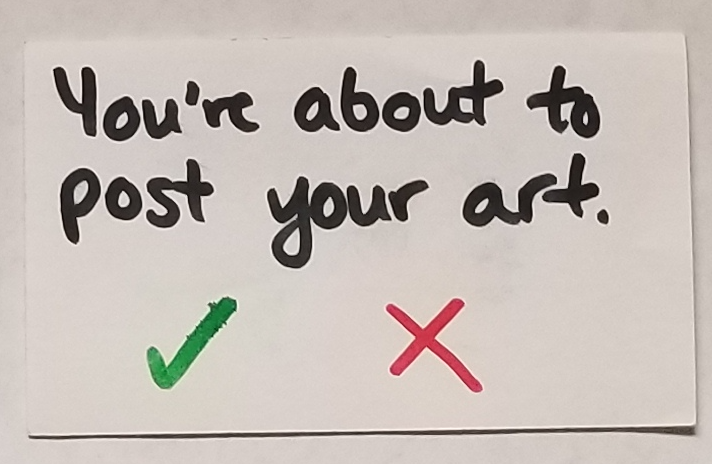 You're about to
post your art.